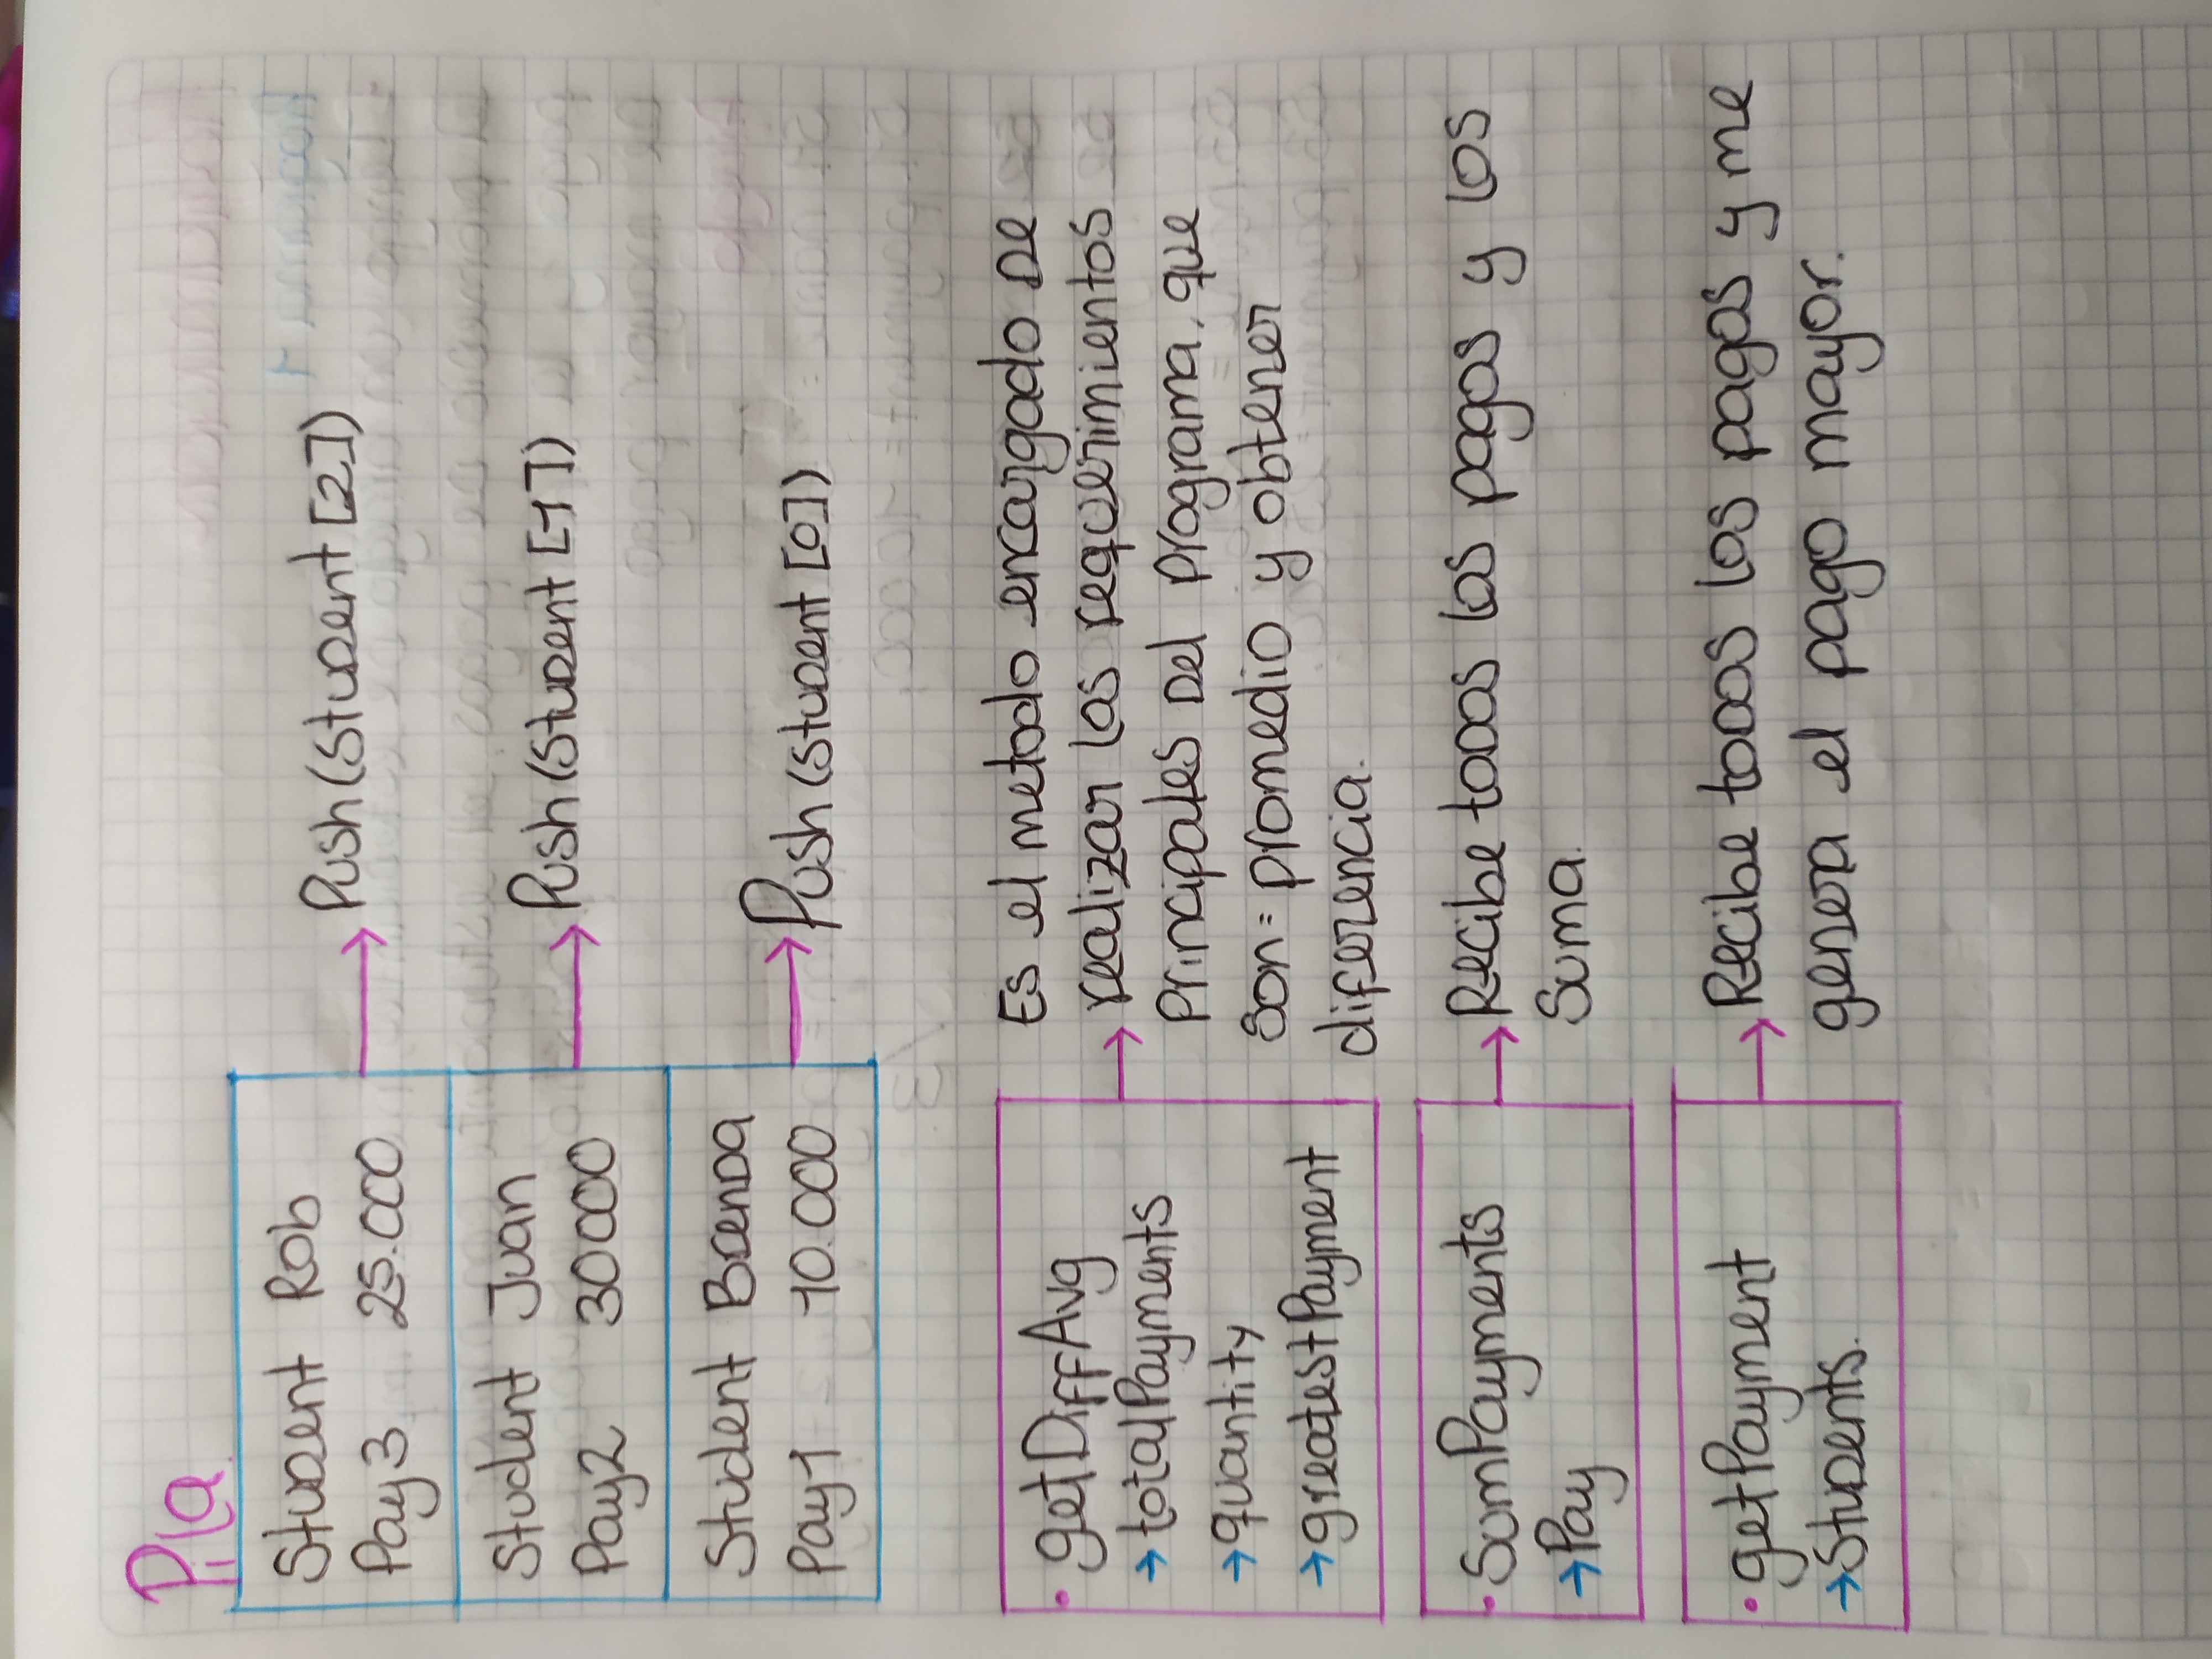 Pila
Student Rob
Pay3 25.000
Push(Student [2])
Student Juan
Pay2 30000
Push(Student [1])
Student Brenda
Pay1 10.000
Push(Student [0])
• getDiffAvg
→ totalPayments
→ quantity
→ greatestPayment
Es el metodo encargado de
realizar los requerimientos
Principales del programa, que
son: promedio y obtener
diferencia.
• SumPayments
→ Pay
Recibe todos los pagos y los
Suma.
• getPayment
→ Students.
Recibe todos los pagos y me
genera el pago mayor.